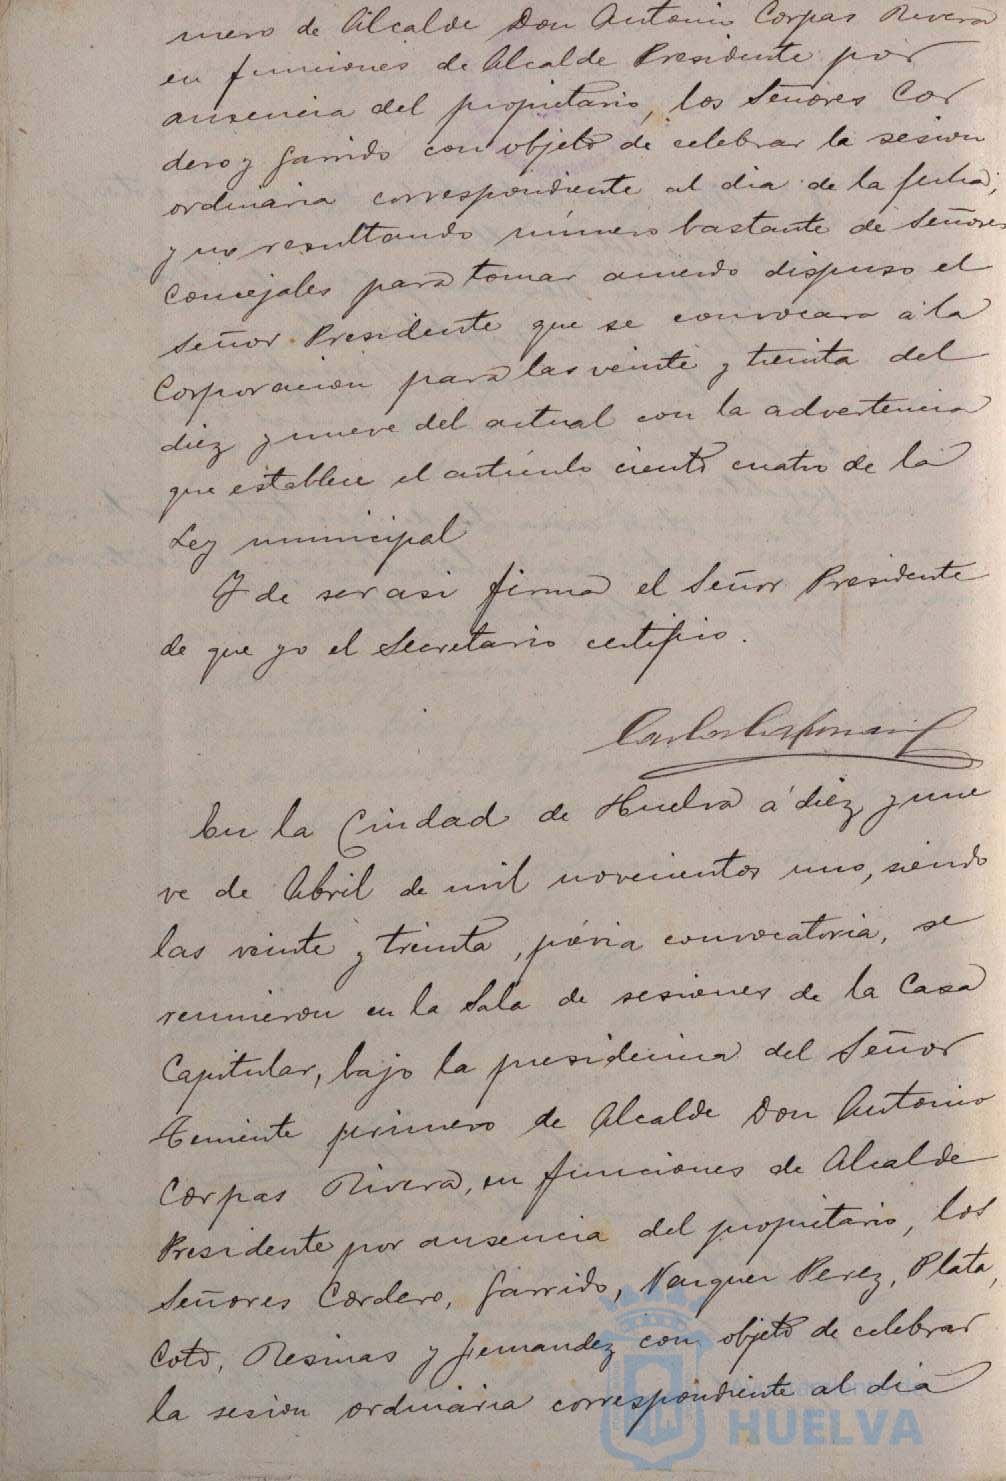 mero de Alcalde Don Antonio Corpas Rivera
en funciones de Alcalde Presidente por
ausencia del propietario, los Señores Cor
dero y Garrido con objeto de celebrar la sesion
ordinaria correspondiente al dia de la fecha;
y no resultando número bastante de Señores
Concejales para tomar acuerdo dispuso el
Señor Presidente que se convocara á la
Corporacion para las veinte y treinta del
diez y nueve del actual con la advertencia
que establece el artículo ciento cuatro de la
Ley municipal
Y de ser asi firma el Señor Presidente
de que yo el Secretario certifico.
En la Ciudad de Huelva á diez y nue
ve de Abril de mil novecientos uno, siendo
las veinte y treinta, prévia convocatoria, se
reunieron en la Sala de sesiones de la Casa
Capitular, bajo la presidencia del Señor
Teniente primero de Alcalde Don Antonio
Corpas Rivera, en funciones de Alcalde
Presidente por ausencia del propietario, los
Señores Cordero, Garrido, Vazquez Perez, Plata,
Coto, Resinas y Fernandez con objeto de celebrar
la sesion ordinaria correspondiente al dia
HUELVA